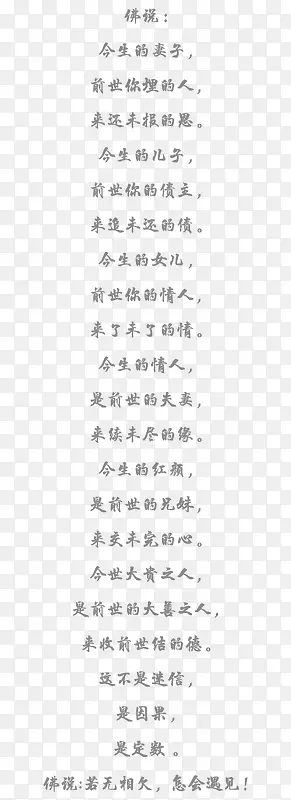 佛说：
今生的妻子，
前世你埋的人，
来还未报的恩。
今生的儿子，
前世你的债主，
来追未还的债。
今生的女儿，
前世你的情人，
来了未了的情。
今生的情人，
是前世的夫妻，
来续未尽的缘。
今生的红颜，
是前世的兄妹，
来交未完的心。
今世大贵之人，
是前世的大善之人，
来收前世结的德。
这不是迷信，
是因果，
是定数 。
佛说:若无相欠，怎会遇见！